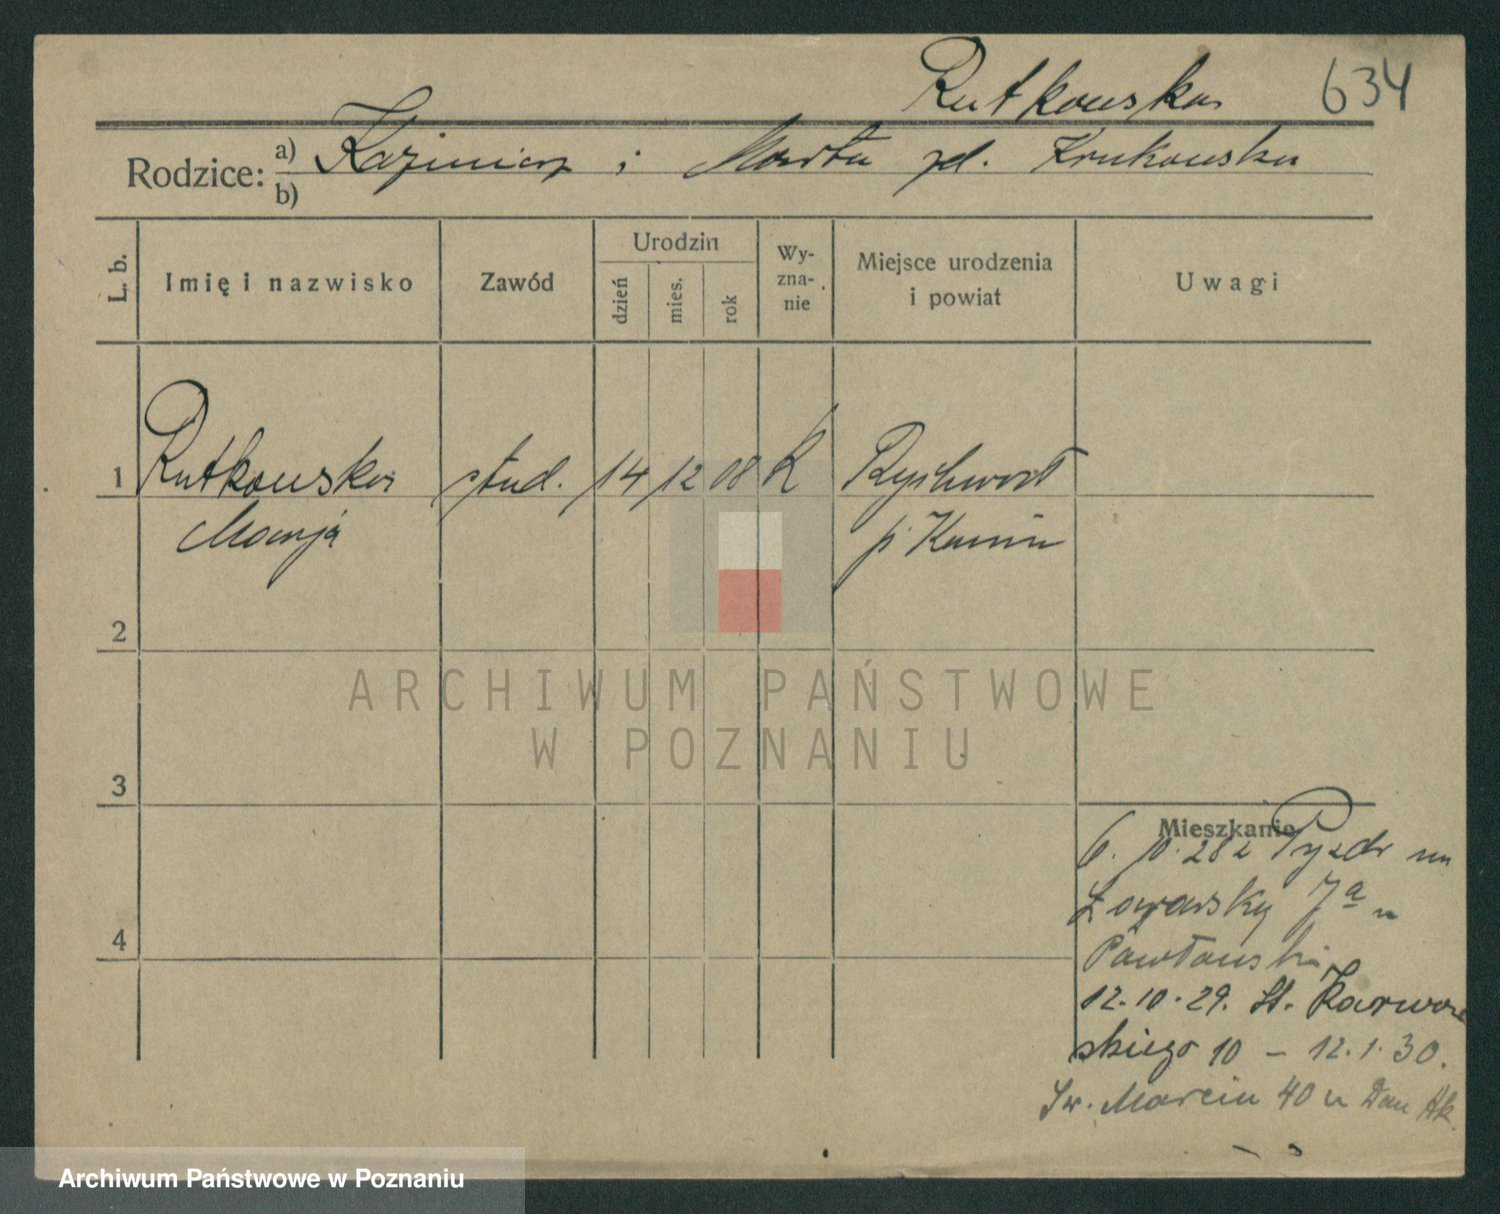 Rutkowska 634
Rodzice: a) Kazimierz i Marta zd. Krukowska
b)
L. b. Imię i nazwisko Zawód Urodzin dzień mies. rok Wy-zna-nie Miejsce urodzenia i powiat Uwagi
1 Rutkowska stud. 14 12 08 K Rychwał
Marja p. Konin
2
ARCHIWUM PAŃSTWOWE
W POZNANIU
3
Mieszkanie
6. 10. 28 z Pyzdr na
Łazarsky 7a u
4 Pawłowski
12.10.29. St. Karwow
skiego 10 – 12.1.30.
Św. Marcin 40 u Dom Ak.
Archiwum Państwowe w Poznaniu